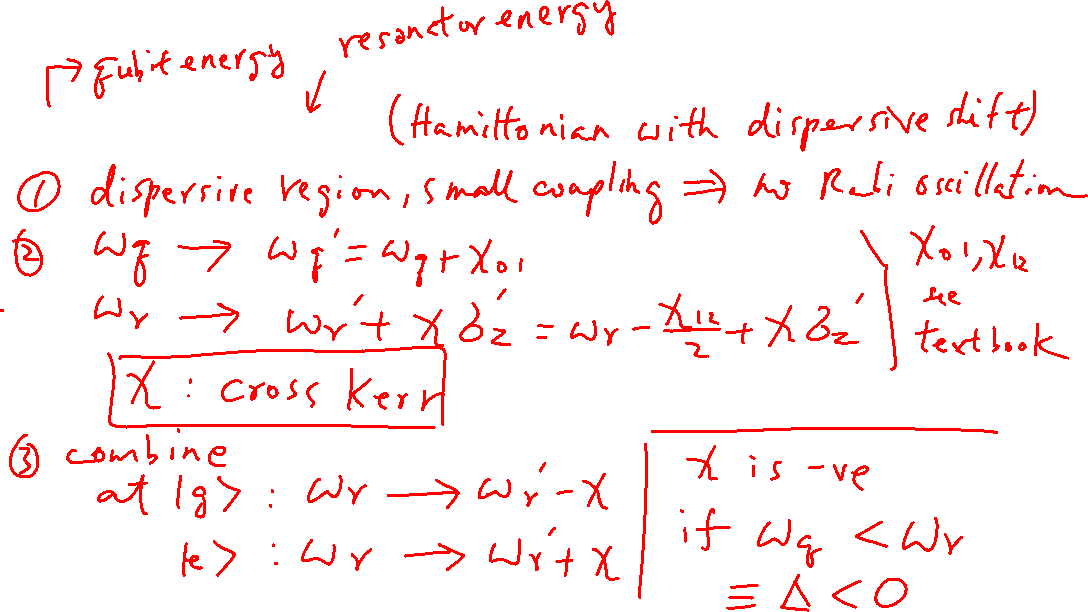 qubit energy
resonator energy
(Hamiltonian with dispersive shift)
① dispersive region, small coupling ⇒ no Rabi oscillation
② ωq → ωq' = ωq + χ01
ωr → ωr' + χ σz' = ωr - χ12/2 + χ σz'
χ01, χ12
see
textbook
χ : cross Kerr
③ combine
at |g> : ωr → ωr' - χ
|e> : ωr → ωr' + χ
χ is -ve
if ωq < ωr
≡ Δ < 0